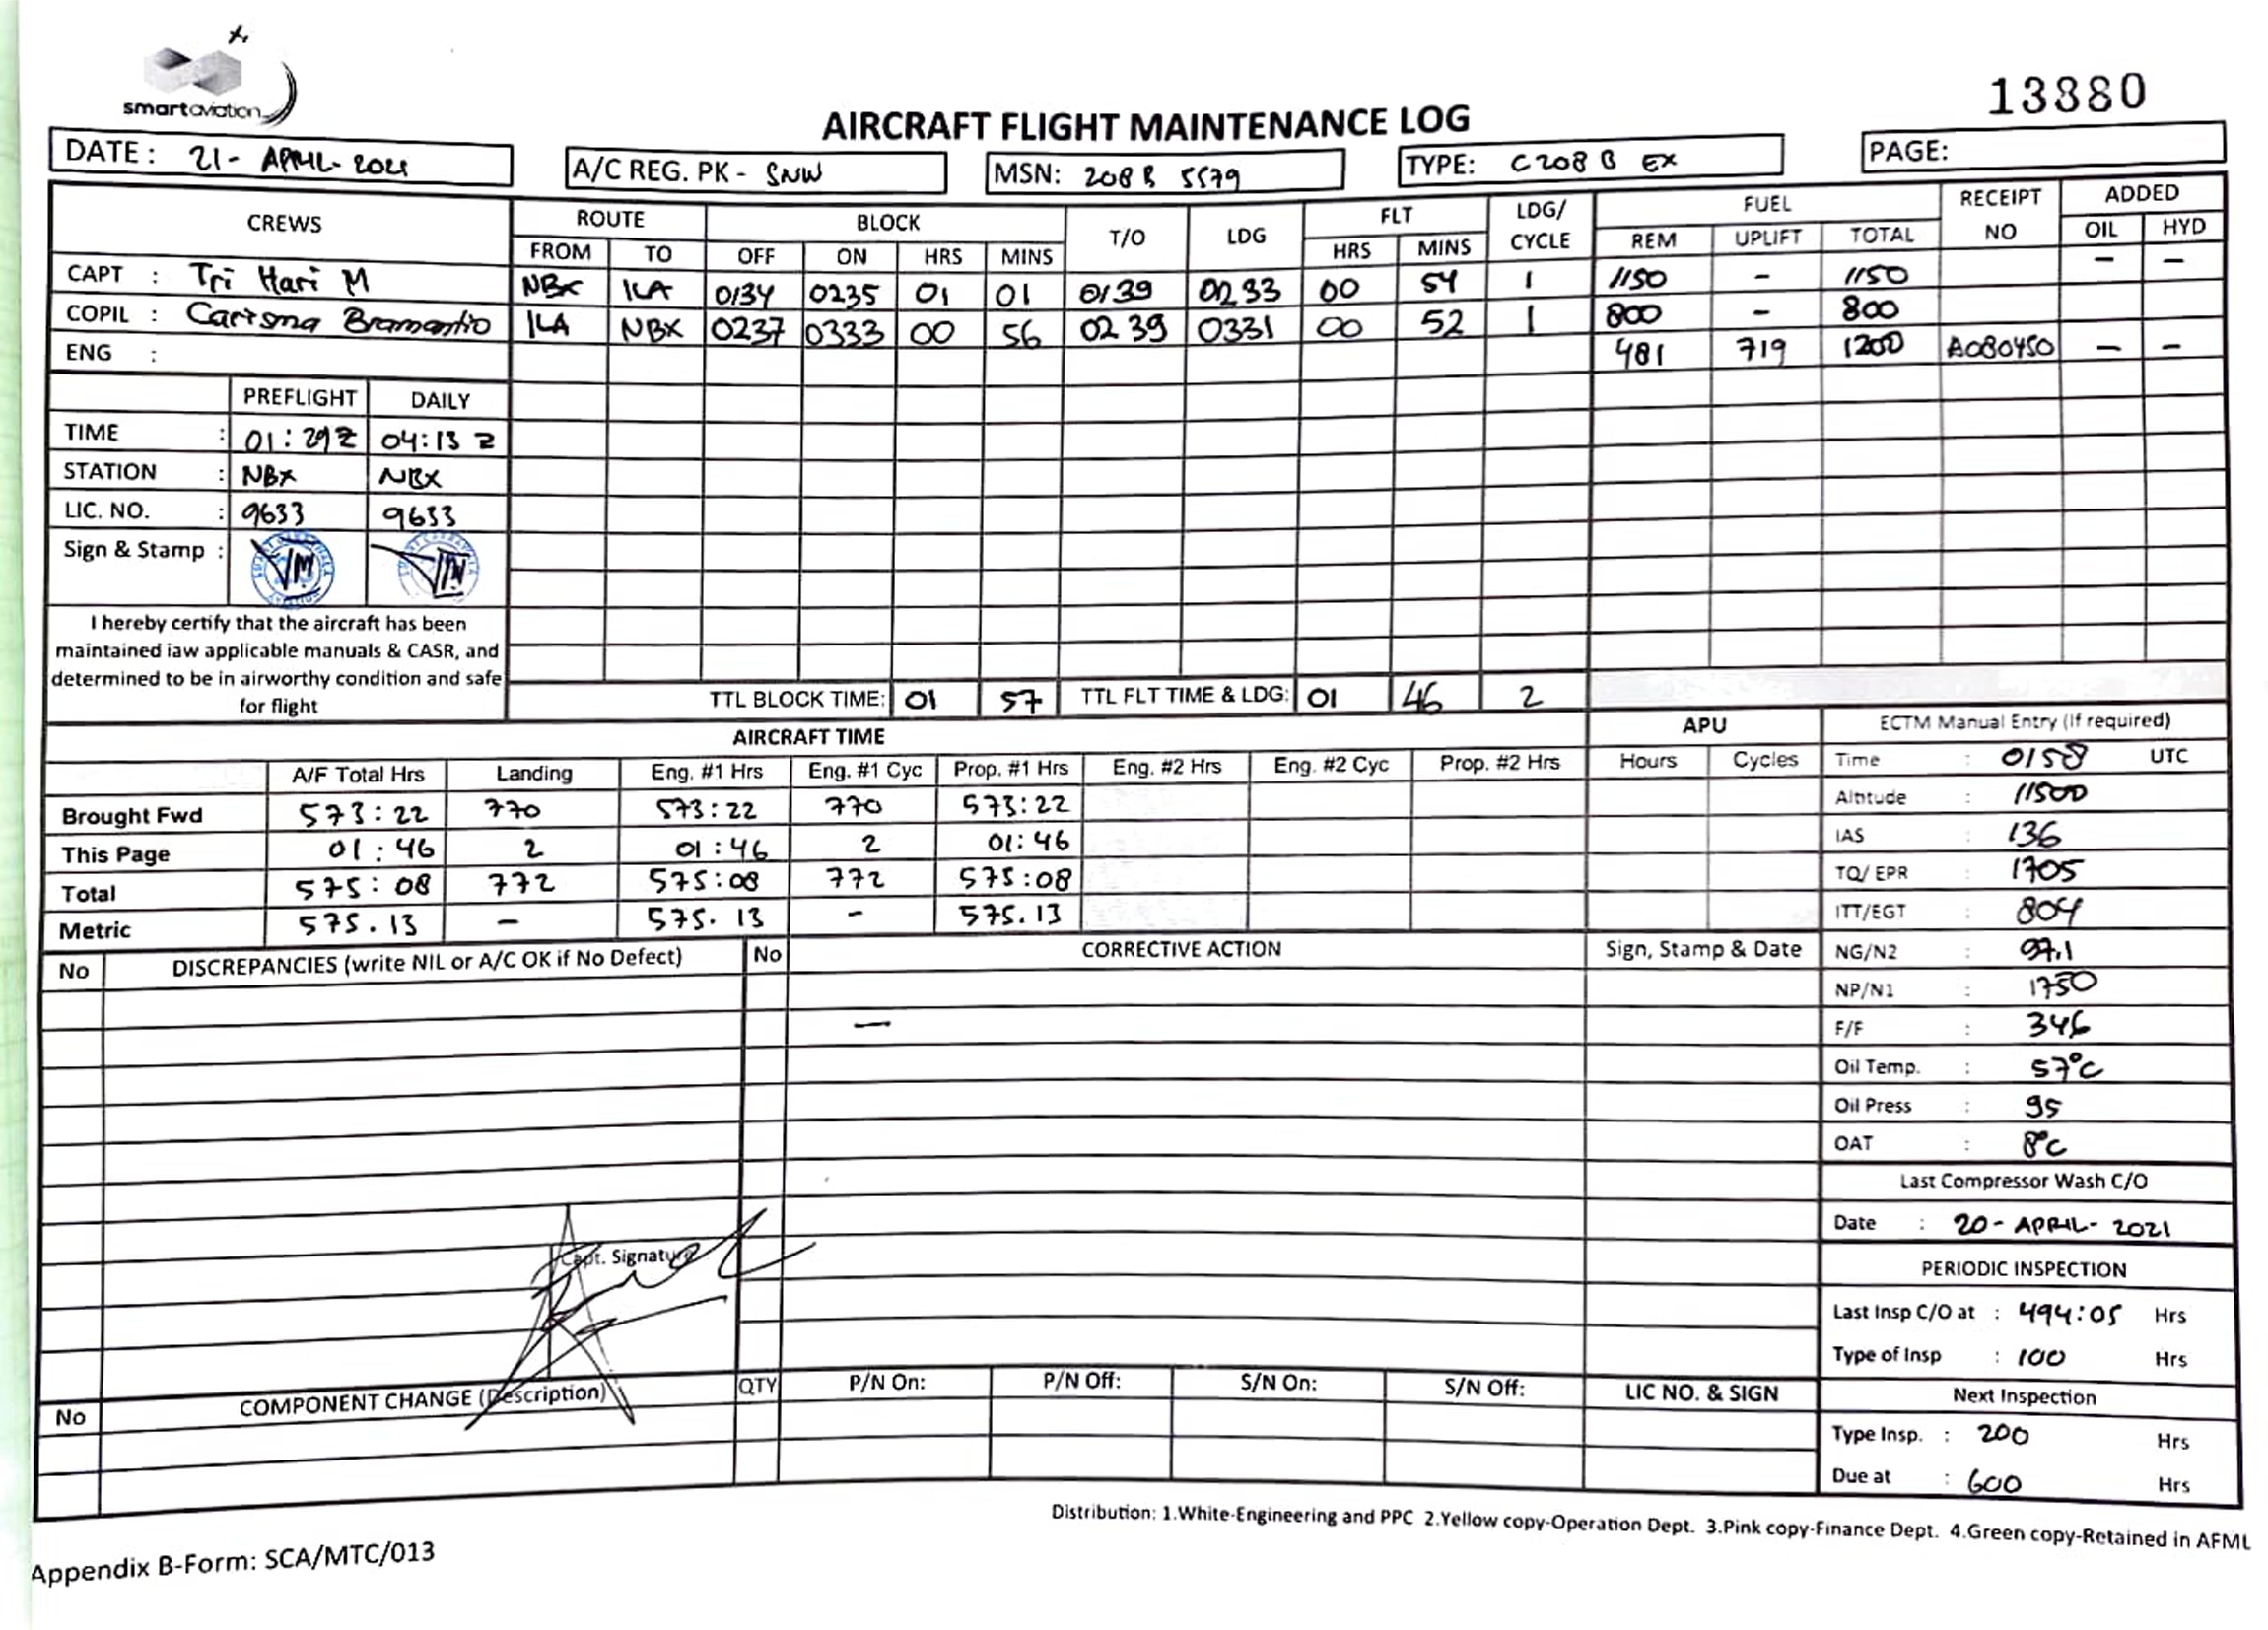 smartaviation
13880
AIRCRAFT FLIGHT MAINTENANCE LOG
DATE: 21- APRIL- 2021 A/C REG. PK - SNW MSN: 208B 5579 TYPE: C208 B EX PAGE:
CREWS ROUTE BLOCK T/O LDG FLT LDG/ CYCLE FUEL RECEIPT NO ADDED
FROM TO OFF ON HRS MINS HRS MINS REM UPLIFT TOTAL OIL HYD
CAPT : Tri Hari M NBX ILA 0134 0235 01 01 0139 0233 00 54 1 1150 - 1150 - -
COPIL : Carisma Bramantio ILA NBX 0237 0333 00 56 0239 0331 00 52 1 800 - 800
ENG : 481 719 1200 A080450 - -
PREFLIGHT DAILY
TIME : 01:29z 04:13z
STATION : NBX NBX
LIC. NO. : 9633 9633
Sign & Stamp :
I hereby certify that the aircraft has been
maintained iaw applicable manuals & CASR, and
determined to be in airworthy condition and safe
for flight
TTL BLOCK TIME: 01 57 TTL FLT TIME & LDG: 01 46 2
AIRCRAFT TIME APU
A/F Total Hrs Landing Eng. #1 Hrs Eng. #1 Cyc Prop. #1 Hrs Eng. #2 Hrs Eng. #2 Cyc Prop. #2 Hrs Hours Cycles
Brought Fwd 573:22 770 573:22 770 573:22
This Page 01:46 2 01:46 2 01:46
Total 575:08 772 575:08 772 575:08
Metric 575.13 - 575.13 - 575.13
No DISCREPANCIES (write NIL or A/C OK if No Defect) No CORRECTIVE ACTION Sign, Stamp & Date
-
Capt. Signature
No COMPONENT CHANGE (Description) QTY P/N On: P/N Off: S/N On: S/N Off: LIC NO. & SIGN
ECTM Manual Entry (If required)
Time : 0158 UTC
Altitude : 11500
IAS : 136
TQ/ EPR : 1705
ITT/EGT : 804
NG/N2 : 97.1
NP/N1 : 1750
F/F : 346
Oil Temp. : 57°C
Oil Press : 95
OAT : 8°C
Last Compressor Wash C/O
Date : 20- APRIL- 2021
PERIODIC INSPECTION
Last Insp C/O at : 494:05 Hrs
Type of Insp : 100 Hrs
Next Inspection
Type Insp. : 200 Hrs
Due at : 600 Hrs
Distribution: 1.White-Engineering and PPC 2.Yellow copy-Operation Dept. 3.Pink copy-Finance Dept. 4.Green copy-Retained in AFML
Appendix B-Form: SCA/MTC/013